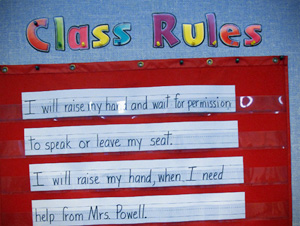 Class Rules
I will raise my hand and wait for permission
to speak or leave my seat.
I will raise my hand, when I need
help from Mrs. Powell.